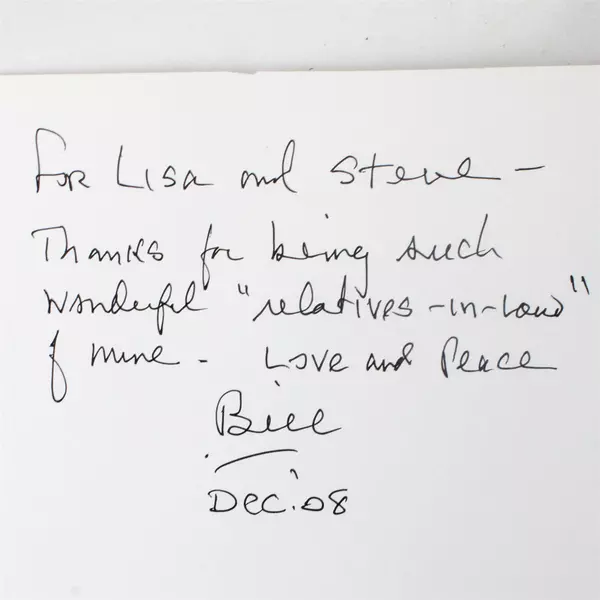 For Lisa and Steve -
Thanks for being such
wonderful "relatives-in-law"
of mine - Love and Peace
Bill
Dec. '08